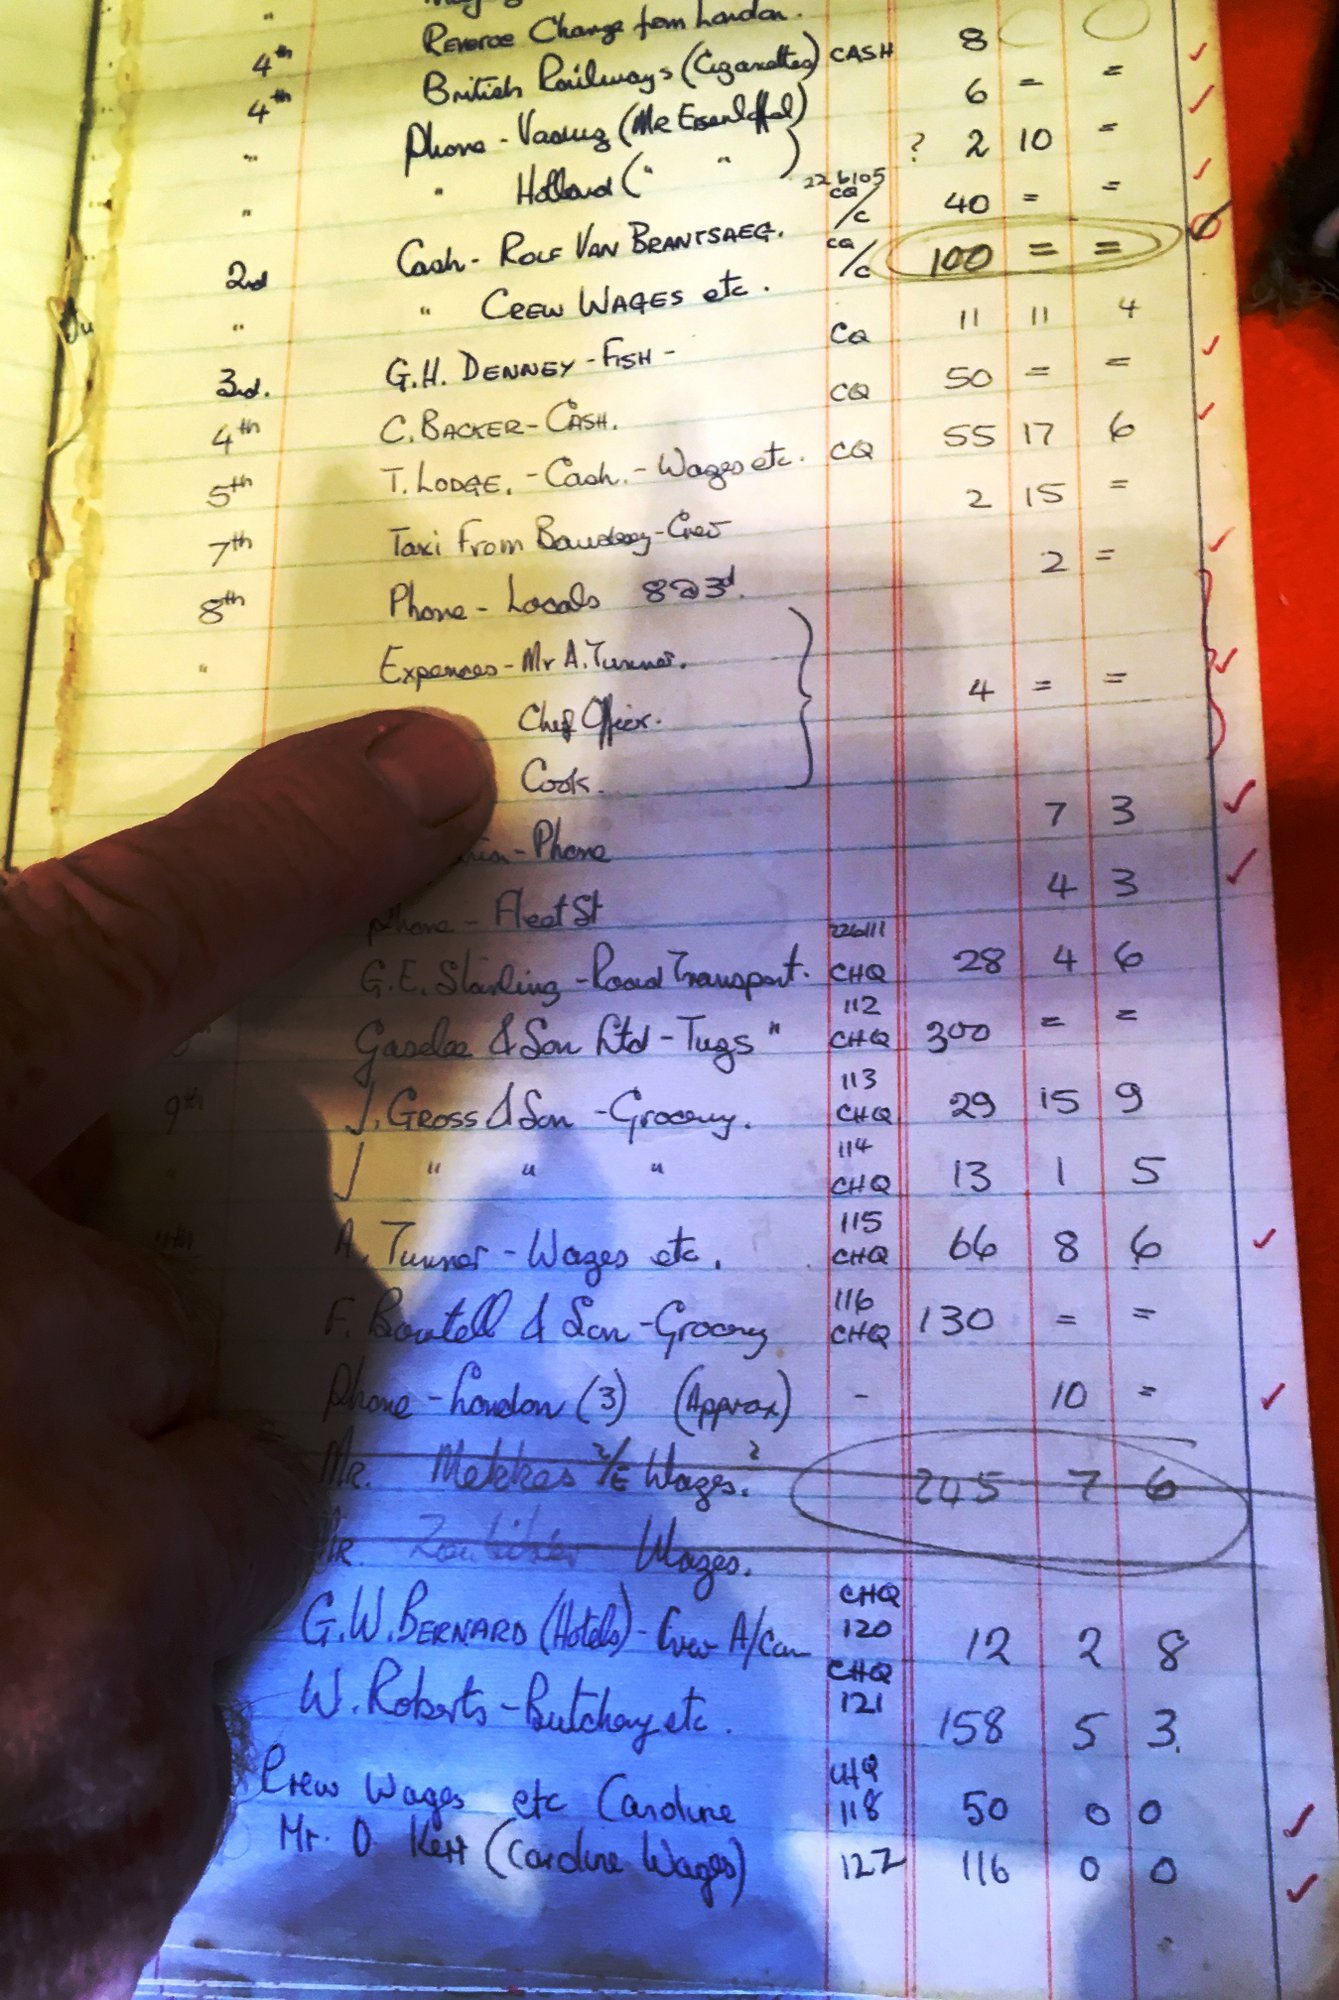 Reverse Charge from London.
4th British Railways (Cigarettes) CASH 8
4th Phone - Vaduz (Mr 6 = =
" " Holland ( " " ) ? 2 10 =
" Cash - ROLF VAN BRANTSAEG. 226105 CQ/C 40 = =
2nd " CREW WAGES etc. CQ/C 100 = =
" G.H. DENNEY - FISH - CQ 11 11 4
3rd. C. BACKER - CASH. CQ 50 = =
4th T. LODGE. - Cash. - Wages etc. CQ 55 17 6
5th Taxi From Bawdsey - Crew 2 15 =
7th Phone - Locals 8 @ 3d. 2 =
8th Expenses - Mr A. Turner.
" Chief Officer. 4 = =
Cook.
- Phone 7 3
Phone - Fleet St 4 3
G.E. Starling - Road Transport. 226111 CHQ 28 4 6
Gaselee & Son Ltd - Tugs " 112 CHQ 300 = =
9th J. GROSS & Son - Grocery. 113 CHQ 29 15 9
" " " 114 CHQ 13 1 5
11th A. Turner - Wages etc. 115 CHQ 66 8 6
F. Boutell & Son - Grocery 116 CHQ 130 = =
Phone - London (3) (Approx) - 10 =
Mr. Mekkes 2/E Wages. ? 245 7 6
Mr. Wages.
G.W. BERNARD (Hotels) - Crew A/Com CHQ 120 12 2 8
W. Roberts - Butchery etc. CHQ 121 158 5 3.
Crew Wages etc Caroline CHQ 118 50 0 0
Mr. O. Kerr (Caroline Wages) 122 116 0 0